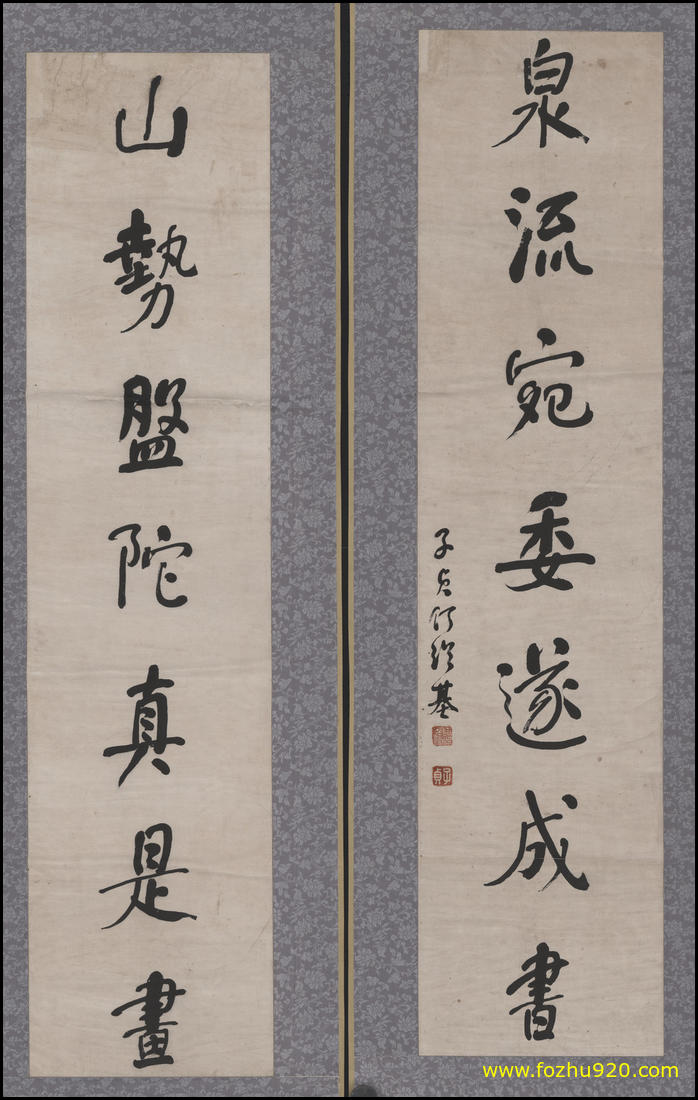 泉流宛委遂成書
子貞何紹基
子貞
山勢盤陀真是畫
www.fozhu920.com